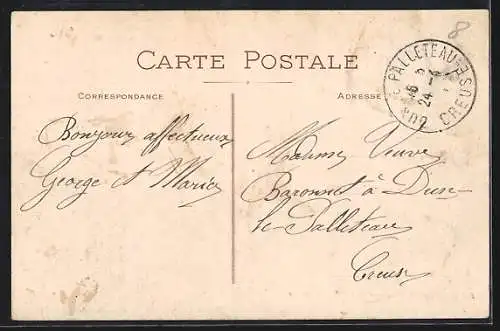 8
CARTE POSTALE
CORRESPONDANCE
ADRESSE
DUN-LE-PALLETEAU CREUSE
24
Bonjour affectueux
George et Maria
Madame Veuve
Baronnet à Dun-
le-Palleteau
Creuse